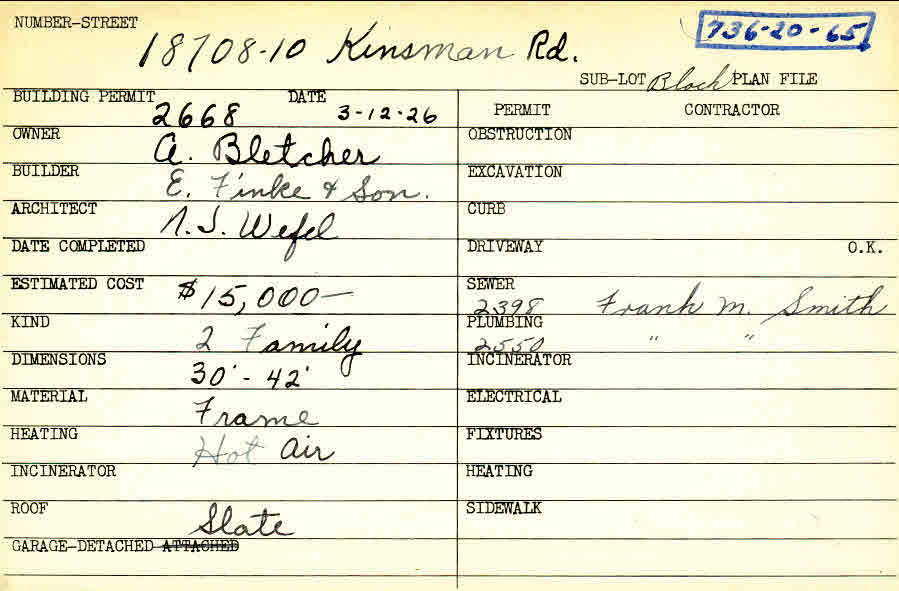 NUMBER-STREET
18708-10 Kinsman Rd.
736-20-65
SUB-LOT Block PLAN FILE
BUILDING PERMIT 2668 DATE 3-12-26
OWNER A. Bletcher
BUILDER E. Finke & Son.
ARCHITECT N.J. Wefel
DATE COMPLETED
ESTIMATED COST $15,000—
KIND 2 Family
DIMENSIONS 30' - 42'
MATERIAL Frame
HEATING Hot Air
INCINERATOR
ROOF Slate
GARAGE-DETACHED ATTACHED
PERMIT CONTRACTOR
OBSTRUCTION
EXCAVATION
CURB
DRIVEWAY O.K.
SEWER 2398 Frank M. Smith
PLUMBING 2550 " "
INCINERATOR
ELECTRICAL
FIXTURES
HEATING
SIDEWALK